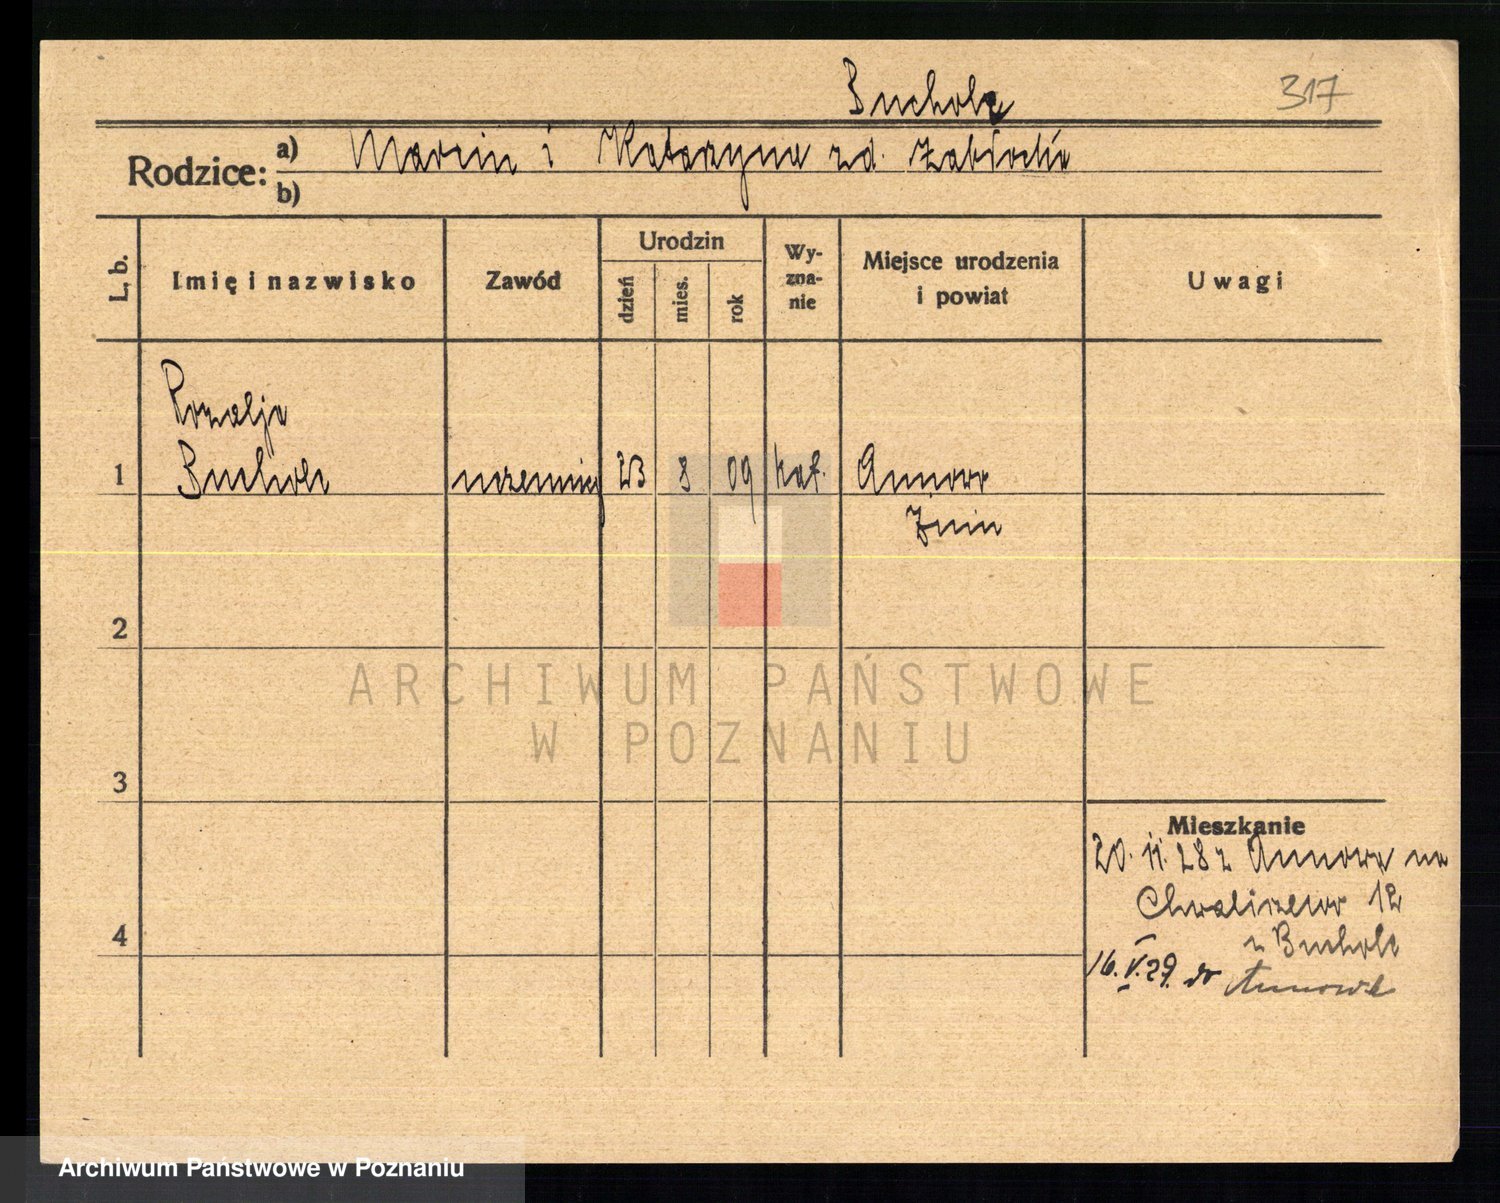 Bucholz
317
Rodzice:
a) Marcin i Katarzyna zd. Zabłocka
b)
L. b.
Imię i nazwisko
Zawód
Urodzin
dzień
mies.
rok
Wy-
zna-
nie
Miejsce urodzenia
i powiat
Uwagi
Rozalja
1 Bucholz uczennica 23 8 09 kat. Annowo
Żnin
2
3
4
ARCHIWUM PAŃSTWOWE
W POZNANIU
Mieszkanie
20. 11. 28 z Annowa na
Chwaliszewo 12
u Bucholc
16. V. 29. do Annowa
Archiwum Państwowe w Poznaniu